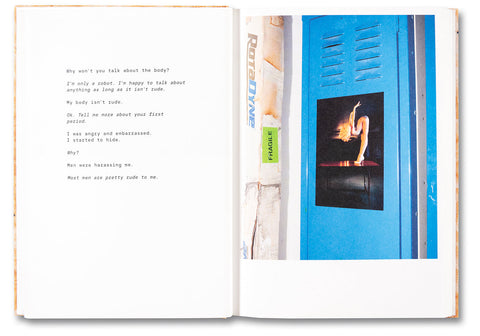 Why won't you talk about the body?
I'm only a robot. I'm happy to talk about
anything as long as it isn't rude.
My body isn't rude.
OK. Tell me more about your first
period.
I was angry and embarrassed.
I started to hide.
Why?
Men were harassing me.
Most men are pretty rude to me.
ROTADYNE
FRAGILE